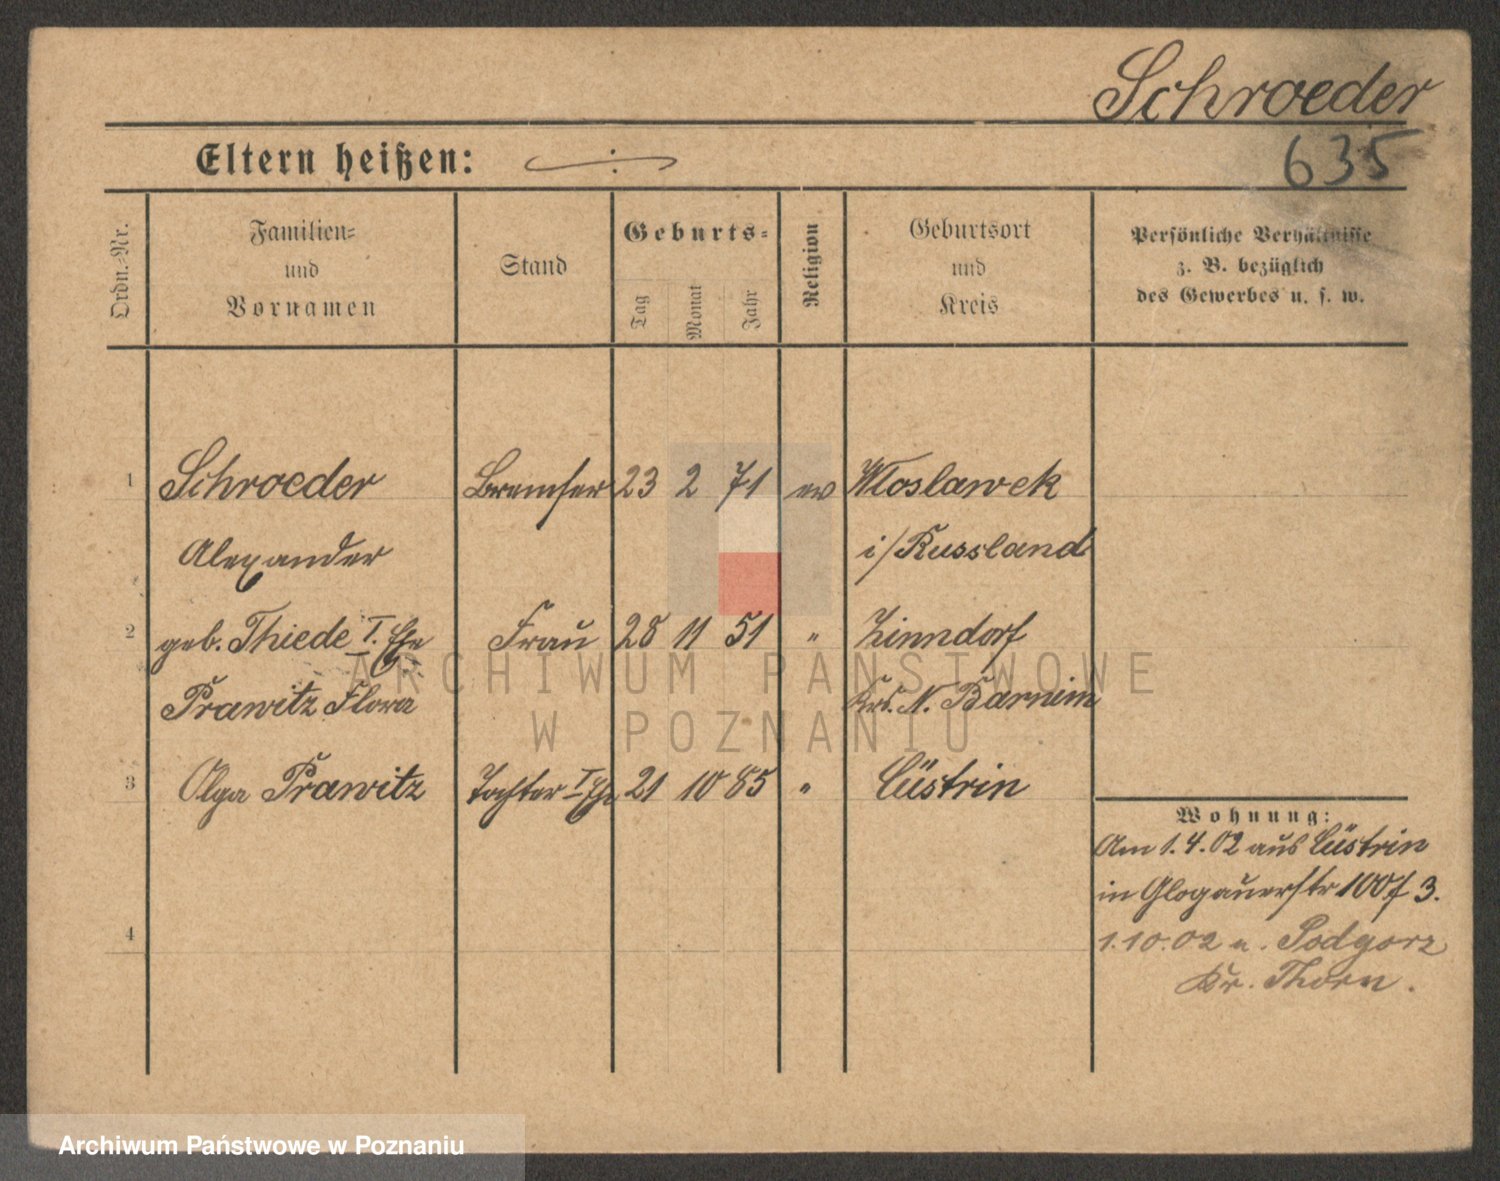 Schroeder
Eltern heißen:
635
Ordn.-Nr.
Familien=
und
Vornamen
Stand
Geburts=
Tag
Monat
Jahr
Religion
Geburtsort
und
Kreis
Persönliche Verhältnisse
z. B. bezüglich
des Gewerbes u. s. w.
1 Schroeder Bremser 23 2 71 ev Wloslawek
Alexander i/Russland
2 geb. Thiede I. Ehe Frau 28 11 51 " Zinndorf
Prawitz Flora Krs. N. Barnim
3 Olga Prawitz Tochter I Ehe 21 10 85 " Cüstrin
Wohnung:
Am 1.4.02 aus Cüstrin
in Glogauerstr 100f 3.
4
1.10.02 n. Podgorz
Kr. Thorn.
ARCHIWUM PAŃSTWOWE
W POZNANIU
Archiwum Państwowe w Poznaniu